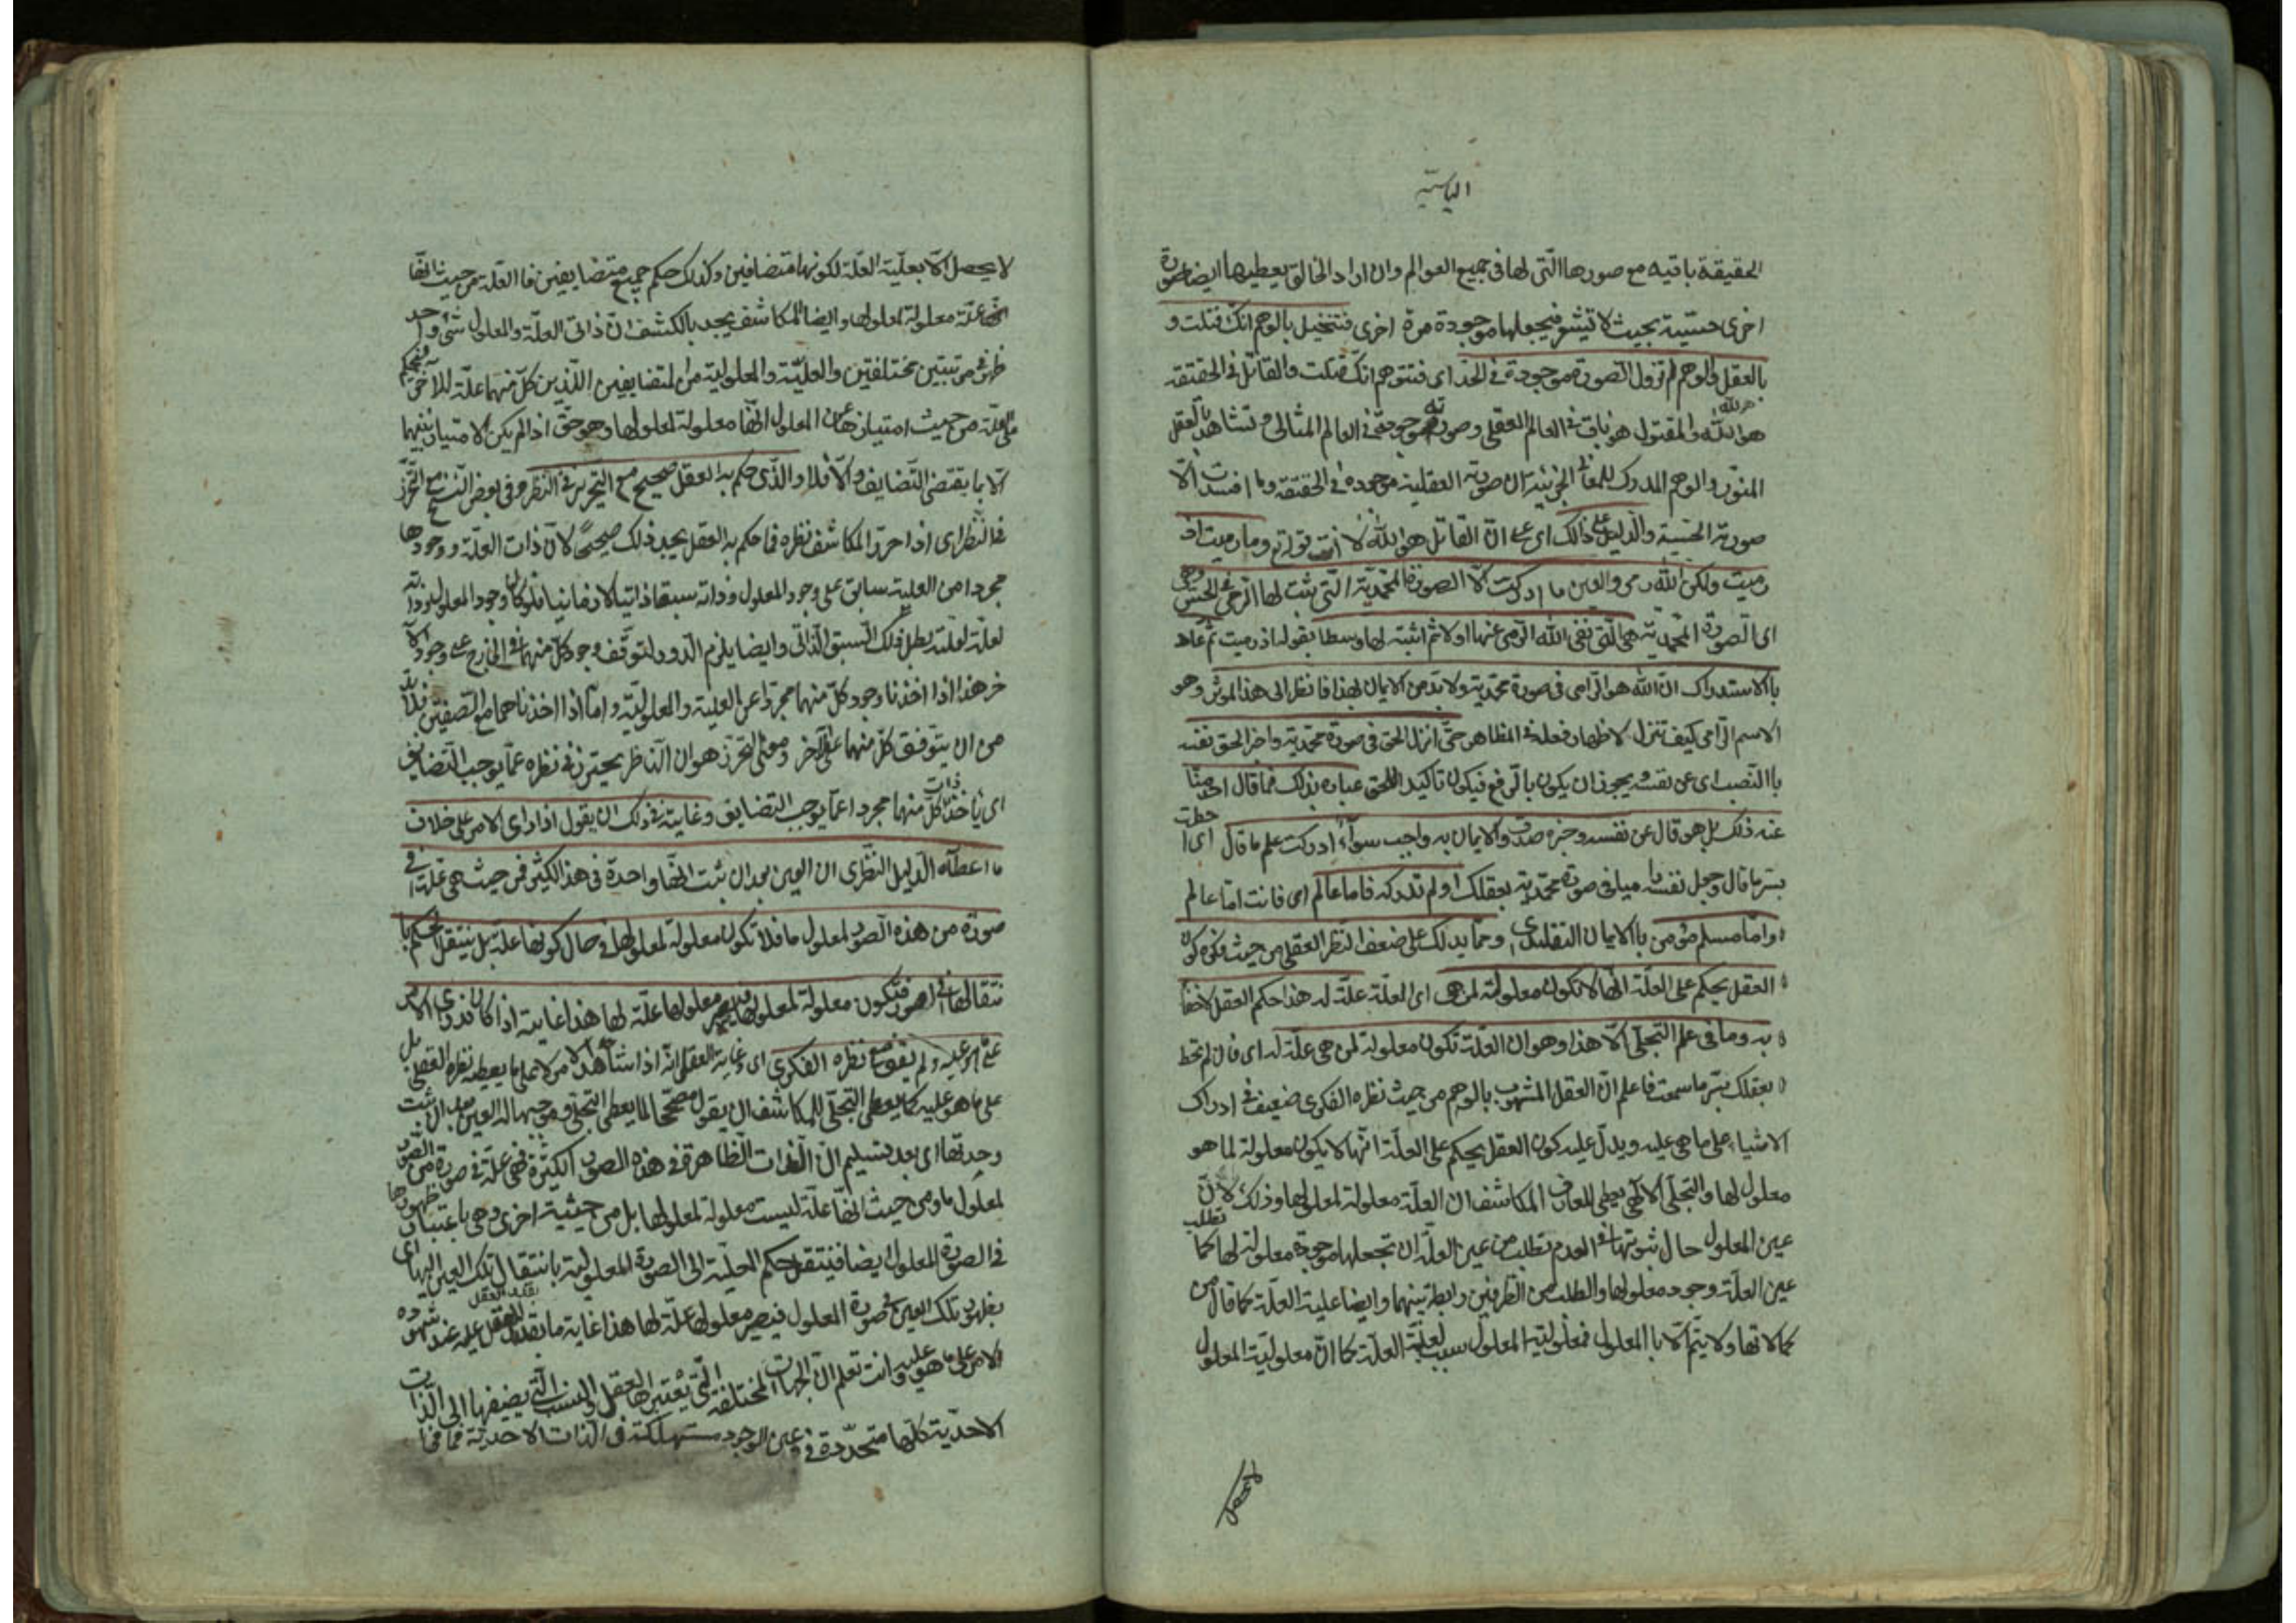 الياسية
الحقيقة باقيه مع صورها التى لها فى جميع العوالم وان اراد الخالق يعطيها ايضا صورة
اخرى حسّية بحيث لا تيشو فيجعلها موجودة مرة اخرى فنتخيل بالوهم انك قتلت و
بالعقل والوهم لم تزول الصورة موجودة فى الحد اى فتتوهم انك قتلت والقاتل فى الحقيقة
هو الله والمقتول هو باق فى العالم العقلى وصورته موجودة فى العالم المثالى وتشاهد بالعقل
المنور والوهم المدرك للمعانى الجزئية ان صورته العقلية موجوده فى الحقيقة وما افسدت الا
صورته الحسية والدليل على ذلك اى على ان القاتل هو الله لا انت قوله تع وما رميت اذ
رميت ولكن الله رمى والعين ما ادركت الا الصورة المحمدية التى ثبت لها الرمى فى الحس وهى
اى الصورة المحمدية هى التى نفى الله الرمى عنها اولا ثم اثبته لها وسطا بقوله اذ رميت ثم عاد
با الاستدراك ان الله هو الرامى فى صورة محمدية ولا بد من الايمان بهذا فانظر الى هذا الموثر وهو
الاسم الرامى كيف تنزل لاظهار فعله فى المظاهر حتى انزل الحق فى صورة محمدية واخبر الحق نفسه
با النصب اى عن نفسه ويجوز ان يكون بالرفع فيكون تاكيد اللحق عباده بذلك فما قال احد منا
عنه ذلك بل هو قال عن نفسه وخبره صدق والايمان به واجب سوآء ادركت علم ما قال اى احطت
بسر ما قال وجعل نفسه راميا فى صورة محمدية بعقلك او لم تدركه فاما عالم اى فانت اما عالم
واما مسلم مؤمن با الايمان التقليدى ومما يدلك على ضعف النظر العقلى من حيث فكره كون
العقل يحكم على العلة انها لا تكون معلولة لمن هى اى العلة علة له هذا حكم العقل لا خفأ
به وما فى علم التجلّى الا هذا وهو ان العلة تكون معلولة لمن هى علة له اى فان لم تحط
بعقلك بسر ما سمعت فاعلم ان العقل المشوب بالوهم من حيث نظره الفكرى ضعيف فى ادراك
الاشياء على ما هى عليه ويدل عليه كون العقل يحكم على العلة انها لا يكون معلولة لما هو
معلول لها والتجلى الالهى يعطى للعارف المكاشف ان العلة معلولة لمعلولها وذلك لان
عين المعلول حال ثبوتها فى العدم تطلب من عين العلة ان تجعلها موجودة معلولة لها كما تطلب
عين العلة وجود معلولها والطلب من الطرفين رابطة بينهما وايضا علية العلة كما قال من
كمالاتها ولا يتم الا با المعلول فمعلولية المعلول سبب لعلية العلة كما ان معلولية المعلول
لا يحصل
لا يحصل الا بعلية العلة لكونهما متضافين وكذلك حكم جميع متضايفين فا العلة من حيث انها
انها علة معلولة لمعلولها وايضا المكاشف يجد بالكشف ان ذاتى العلة والمعلول شئ واحد
ظهر فى مرتبتين مختلفتين والعلية والمعلولية من المتضايفين اللذين كل منهما علة للاخر فيحكم
على العلة من حيث امتيازها عن المعلول انها معلولة لمعلولها وهو حق اذا لم يكن الامتياز بينهما
الا بما يقتضى التضايف والا فلا والذى حكم به العقل صحيح مع التحرير فى النظر وفى بعض النسخ مع التحرز
فى النظر اى اذا حرر المكاشف نظره فما حكم به العقل يجد ذلك صحيحًا لان ذات العلة ووجودها
مجردا من العلية سابق على وجود المعلول وذاته سبقا ذاتيا لا زمانيا فلو كان وجود المعلول وذاته
لعلة لعلته بطل ذلك السبق الذاتى وايضا يلزم الدور لتوقف وجود كل منهما فى الخارج على وجود الآ
خر هذا اذا اخذنا وجود كل منهما مجردا عن العلية والمعلولية واما اذا اخذناهما مع الصفتين فلا بد
من ان يتوقف كل منهما على الآخر ومعنى التحرز هو ان الناظر يحترز فى نظره عما يوجب التضايف
اى ياخذ ذات كل منهما مجردا عما يوجب التضايف وغايته فى ذلك ان يقول اذا راى الامر على خلاف
ما اعطاه الدليل النظرى ان العين بعد ان ثبت انها واحدة فى هذا الكثير فمن حيث هى علة فى
صورة من هذه الصور لمعلول ما فلا تكون معلولة لمعلولها فى حال كونها علة بل ينتقل الحكم با
نتقالها فى الصور فتكون معلولة لمعلولها فيصير معلولها علة لها هذا غايته اذا كان قد راى الامر
على ما هو عليه ولم يقف مع نظره الفكرى اى غاية العقل انه اذا شاهد الامر لا على ما يعطيه نظره العقلى بل
على ما هو عليه كما يعطى التجلى للمكاشف ان يقول مصححا لما يعطى التجلى وموجبها له العين بعد ان ثبت
وحدتها اى بعد تسليم ان الذات الظاهرة فى هذه الصور الكثيرة فهى علة فى صورة من الصور
لمعلول ما ومن حيث انها علة ليست معلولة لمعلولها بل من حيثية اخرى وهى باعتبار ظهورها
فى الصورة المعلول ايضا فينتقل حكم العلية الى الصورة المعلولية بانتقال تلك العين اليها اى
بظهور تلك العين فى صورة المعلول فيصير معلولها علة لها هذا غاية ما يقدر العقل عليه عند شهوده
الامر على ما هو عليه وانت تعلم ان الجهات المختلفة التى يعتبرها العقل والنسب التى يضيفها الى الذات
الاحدية كلها متحدة فى عين الوجود مستهلكة فى الذات الاحدية فما فى